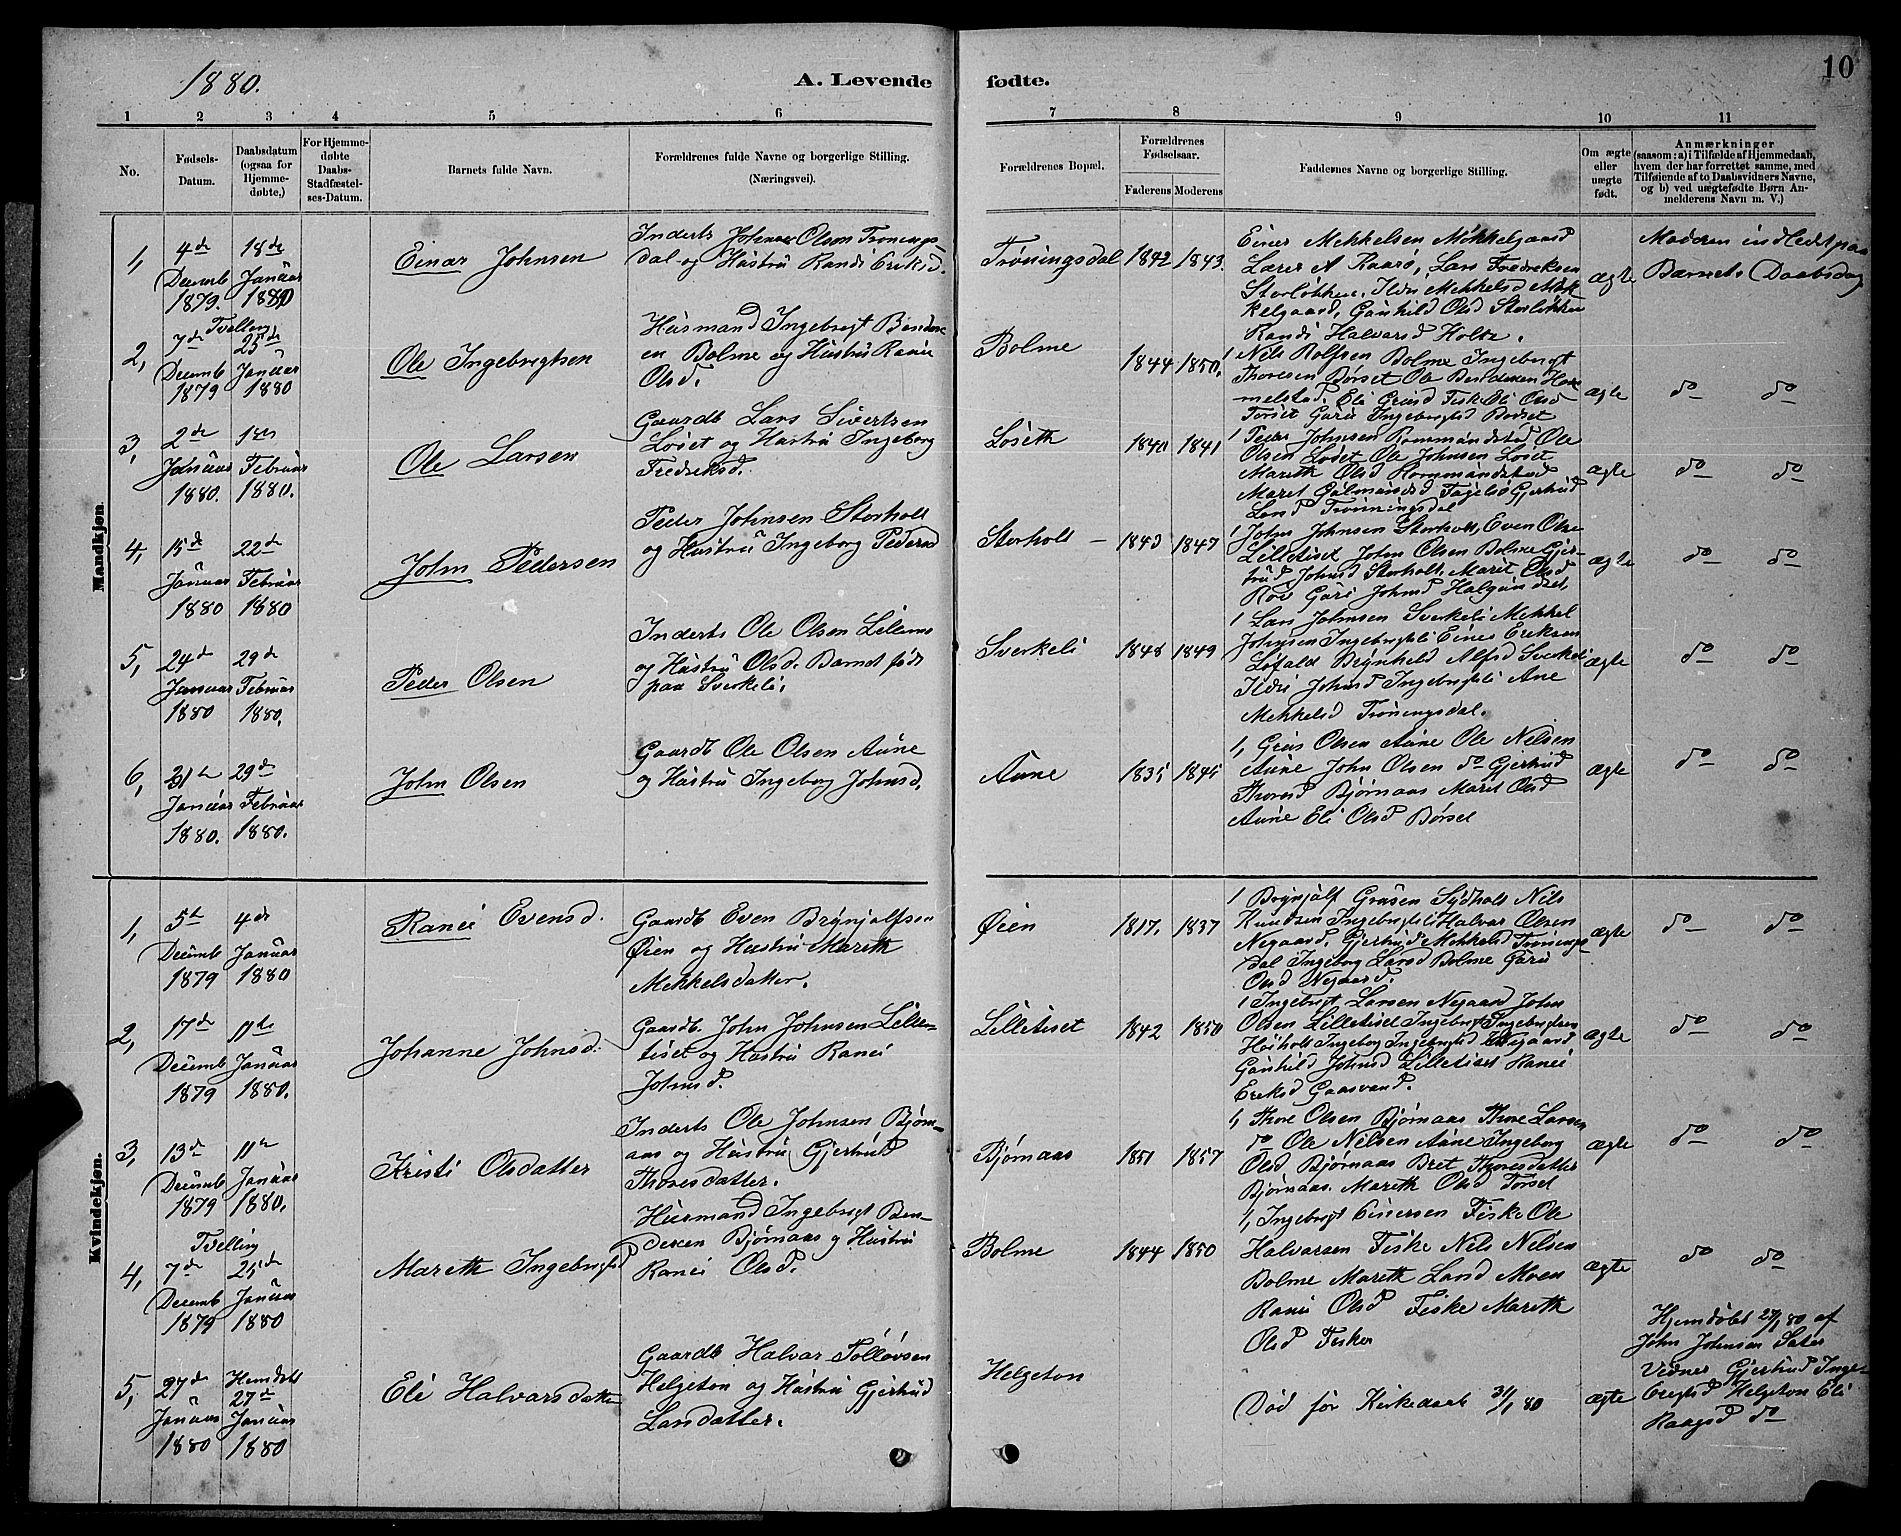 1880.
A. Levende
fødte.
10
1 2 3 4 5 6 7 8 9 10 11
No.
Fødsels-
Datum.
Daabsdatum
(ogsaa for
Hjemme-
døbte,)
For Hjemme-
døbte
Daabs-
Stadfæstel-
ses-Datum.
Barnets fulde Navn.
Forældrenes fulde Navne og borgerlige Stilling.
(Næringsvei).
Forældrenes Bopæl.
Forældrenes
Fødselsaar.
Faderens
Moderens
Faddernes Navne og borgerlige Stilling.
Om ægte
eller
uægte
født.
Anmærkninger
(saasom: a) i Tilfælde af Hjemmedaab,
hvem der har forrettet samme, med
Tilføiende af to Daabsvidners Navne,
og b) ved uægtefødte Børn An-
melderens Navn m. V.)
Mandkjøn.
1,
4de
Decemb
1879.
18de
Januar
1880
Einar Johnsen
Inderts John Olsen Tronings-
dal og Hustru Randi Eriksd.
Tröningsdal
1842
1843.
Einer Mekkelsen Mökkelgaard
Lærer A Kaarö, Lars Fredriksen
Storløkken, Ildri Mekkelsd Møk-
kelgaard, Gunhild Olsd Storløkken
Randi Halvarsd Holte.
ægte
Moderen indledt paa
Barnets Daabsdag
2,
Tvelling
7de
Decemb
1879
25de
Januar
1880
Ole Ingebrigtsen
Husmand Ingebrigt Bendix-
en Bolme og Hustru Ranei
Olsd.
Bolme
1844
1850.
1 Nils Rolfsen Bolme Ingebrigt
Thoresen Børset Ole Bendixen Ham-
melstad. Eli Gunsd Fiske Eli Olsd
Torset Guru Ingebrigtsd Børset
ægte
do do
3,
2de
Januar
1880.
1ste
Februar
1880.
Ole Larsen
Gaardb Lars Sivertsen
Løset og Hustru Ingeborg
Fredriksd.
Løseth
1840
1841
1 Peder Johnsen Rommundstad Ole
Olsen Løset Ole Johnsen Løset
Mareth Olsd Rommundstad
Maret Galmandsd Fagelsø Gjertrud
Larsd Tronningsdal
ægte
do do
4,
15de
Januar
1880
22de
Februar
1880
John Pedersen
Peder Johnsen Storholt
og Hustru Ingeborg Pedersd
Storholt
1843
1847
1 John Johnsen Storholt, Even Olse
Lilletiset John Olsen Bolme Gjer-
trud Johnsd Storholt. Marit Olsd
Roe Guri Johnsd Halgunset,
ægte
do do
5,
24de
Januar
1880
29de
Februar
1880.
Peder Olsen
Inderts Ole Olsen Lillemo
og Hustru Olsd. Barnet født
paa Sverkeli.
Sverkeli
1848
1849
1 Lars Johnsen Sverkeli Mekkel
Johnsen Ingebrigtsli Einer Eriksen
Løfald Brynhild Alfsd Sverkeli
Ildri Johnsd Ingebrigtsli Ane
Mekkelsd Troningsdal.
ægte
do do
6,
31te
Januar
1880.
29de
Februar
1880.
John Olsen
Gaardb Ole Olsen Aune
og Hustru Ingeborg Johnsd.
Aune
1835
1845
1, Guns Olsen Aune Ole Nilsen
Aune John Olsen do Gjertrud
Thoresd Bjørnaas Marit Olsd
Aune Eli Olsd Børset
ægte
do do
Kvindekjøn.
1,
5te
Decemb
1879
4de
Januar
1880
Ranei Evensd.
Gaardb Even Brynjulfsen
Øien og Hustru Mareth
Mekkelsdatter.
Øien
1817.
1837
1 Brynjulf Gunsen Sydholt Nils
Knudsen Ingebrigtsli Halvar Olsen
Negaard. Gjertrud Mekkelsd Tronings-
dal Ingeborg Larsd Bolme Guru
Olsd Negaard.
ægte
do do
2,
17de
Decemb
1879
11te
Januar
1880.
Johanne Johnsd.
Gaardb. John Johnsen Lille-
tiset og Hustru Ranei
Johnsd.
Lilletiset
1842
1850
1 Ingebrigt Larsen Negaard John
Olsen Lilletiset Ingebrigt Ingebrigtsen
Høiholt Ingeborg Ingebrigtsd Negaard
Gunhild Johnsd Lilletiset Ranei
Eriksd Gaasvand.
ægte
do do
3,
13de
Decemb
1879
11te
Januar
1880.
Kristi Olsdatter
Inderts Ole Johnsen Bjørn-
aas og Hustru Gjertrud
Thoresdatter.
Bjørnaas
1851
1857
1, Thore Olsen Bjørnaas Thore Larsen
do Ole Nilsen Aune Ingeborg
Olsd Bjørnaas Bret Thoresdatter
Bjørnaas. Mareth Olsd Torset
ægte
do do
4,
Tvelling
7de
Decemb
1879
25de
Januar
1880
Mareth Ingebrigtsd
Husmand Ingebrigt Ben-
dixen Bjørnaas og Hustru
Ranei Olsd.
Bolme
1844
1850
1, Ingebrigt Einersen Fiske Ole
Halvarsen Fiske Nils Nilsen
Bolme Mareth Larsd Moen
Ranei Olsd Fiske Mareth
Olsd Fiske
ægte
do do
5,
27de
Januar
1880
Hemdøbt
27de
Januar
1880
Eli Halvarsdatter
Gaardb Halvar Tølløvsen
Helgeton og Hustru Gjertrud
Larsdatter.
Helgeton
Død før Kirkedaab 31/1 80
ægte
Hjemdøbt 27/1 80 af
John Johnsen Sater
Vidner Gjertrud Inge-
brigtsd Helgeton Eli
Haagsd do